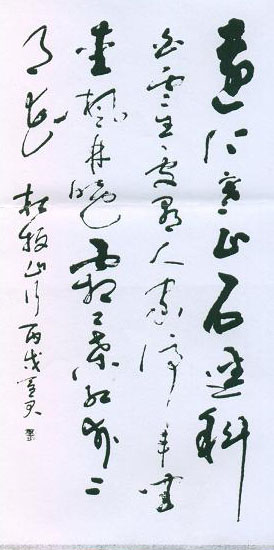 遠上寒山石逕斜
白雲生處有人家停車坐
愛楓林晚霜葉紅於二
月花 杜牧山行 丙戌夏